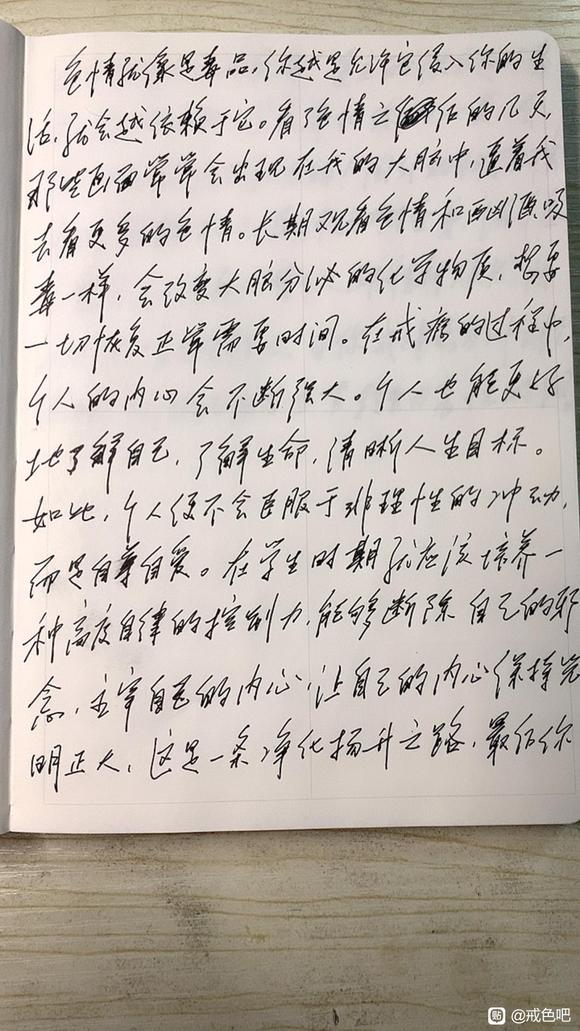 色情就像是毒品，你越是允许它侵入你的生
活，就会越依赖于它。看了色情之后的几天，
那些画面常常会出现在我的大脑中，逼着我
去看更多的色情。长期观看色情和酗酒吸
毒一样，会改变大脑分泌的化学物质，想要
一切恢复正常需要时间。在戒瘾的过程中，
个人的内心会不断强大。个人也能更好
地了解自己，了解生命，清晰人生目标。
如此，个人便不会臣服于非理性的冲动，
而是自尊自爱。在学生时期就应该培养一
种高度自律的控制力，能够断除自己的邪
念，主宰自己的内心，让自己的内心保持光
明正大，这是一条净化扬升之路，最后你
贴 @戒色吧